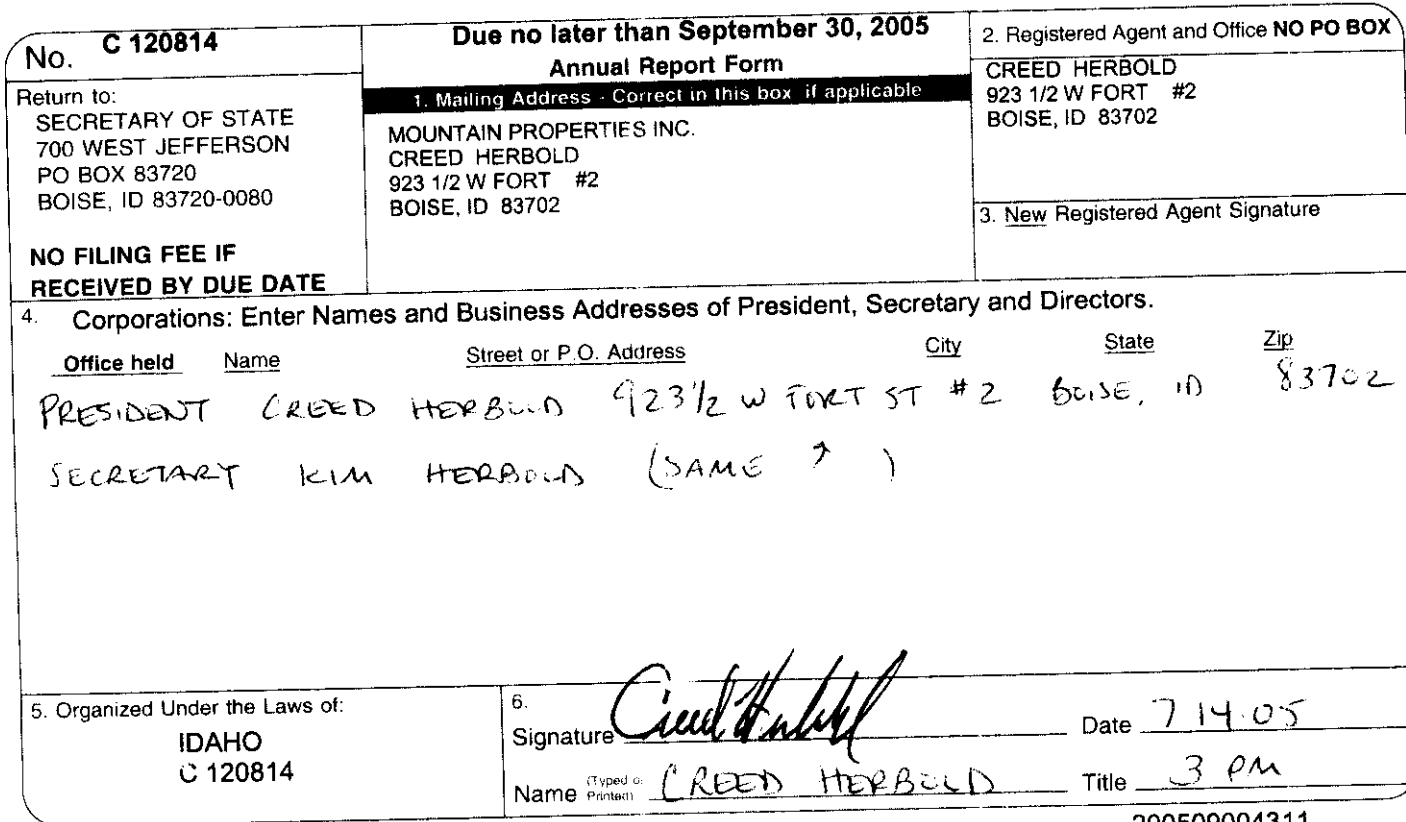 No. C 120814
Return to:
SECRETARY OF STATE
700 WEST JEFFERSON
PO BOX 83720
BOISE, ID 83720-0080
NO FILING FEE IF
RECEIVED BY DUE DATE
Due no later than September 30, 2005
Annual Report Form
1. Mailing Address - Correct in this box if applicable
MOUNTAIN PROPERTIES INC.
CREED HERBOLD
923 1/2 W FORT #2
BOISE, ID 83702
2. Registered Agent and Office NO PO BOX
CREED HERBOLD
923 1/2 W FORT #2
BOISE, ID 83702
3. New Registered Agent Signature
4. Corporations: Enter Names and Business Addresses of President, Secretary and Directors.
Office held Name Street or P.O. Address City State Zip
PRESIDENT CREED HERBOLD 923 1/2 W FORT ST #2 BOISE, ID 83702
SECRETARY KIM HERBOLD (SAME ↑ )
5. Organized Under the Laws of:
IDAHO
C 120814
6.
Signature Creed Herbold Date 7 14.05
Name (Typed or Printed) CREED HERBOLD Title 3 PM
200509004311